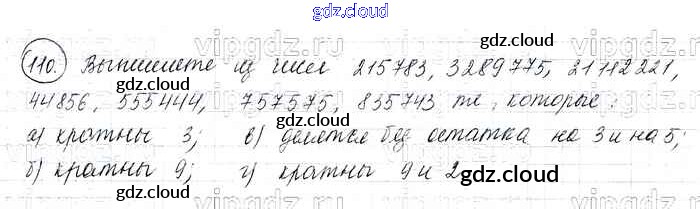 gdz.cloud
110. Выпишите из чисел 215783, 3289775, 21112221,
44856, 555444, 757575, 835743 те, которые:
а) кратны 3; в) делятся без остатка на 3 и на 5;
б) кратны 9; г) кратны 9 и 2.
gdz.cloud gdz.cloud
gdz.cloud gdz.cloud
gdz.cloud gdz.cloud
vipgdz.ru vipgdz.ru